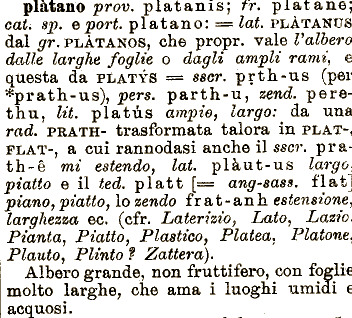 plàtano prov. platanis; fr. platane;
cat. sp. e port. platano: = lat. PLÀTANUS
dal gr. PLÀTANOS, che propr. vale l'albero
dalle larghe foglie o dagli ampli rami, e
questa da PLATỲS = sscr. pṛth-us (per
*prath-us), pers. parth-u, zend. pere-
thu, lit. platùs ampio, largo: da una
rad. PRATH- trasformata talora in PLAT-,
FLAT-, a cui rannodasi anche il sscr. pra-
th-ê mi estendo, lat. plàut-us largo,
piatto e il ted. platt [= ang-sass. flat]
piano, piatto, lo zendo frat-anh estensione,
larghezza ec. (cfr. Laterizio, Lato, Lazio.
Pianta, Piatto, Plastico, Platea, Platone,
Plauto, Plinto? Zattera).
Albero grande, non fruttifero, con foglie
molto larghe, che ama i luoghi umidi e
acquosi.